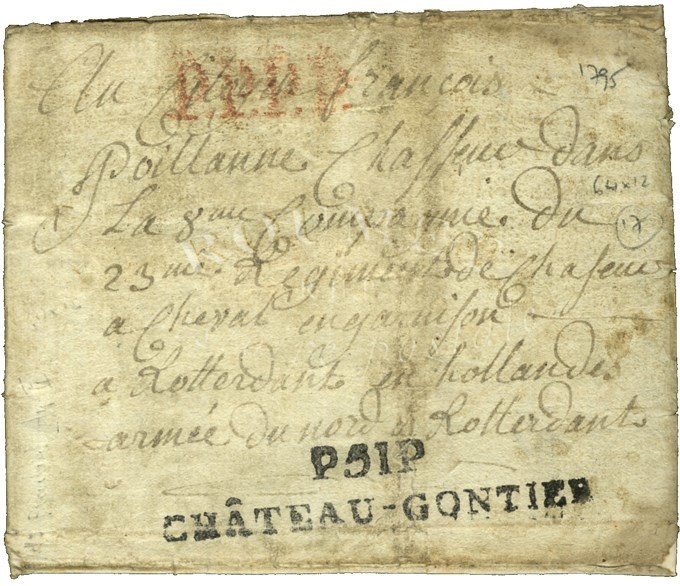 Au Citoyen françois
P.P.P.P.
1795
Poillanne Chasseur dans
64x12
La 8me Compagnie du
17
23me Regiment de Chaseur
a Cheval engarnison
a Rotterdant en hollande
armée du nord a Rotterdant
P51P
CHÂTEAU-GONTIER